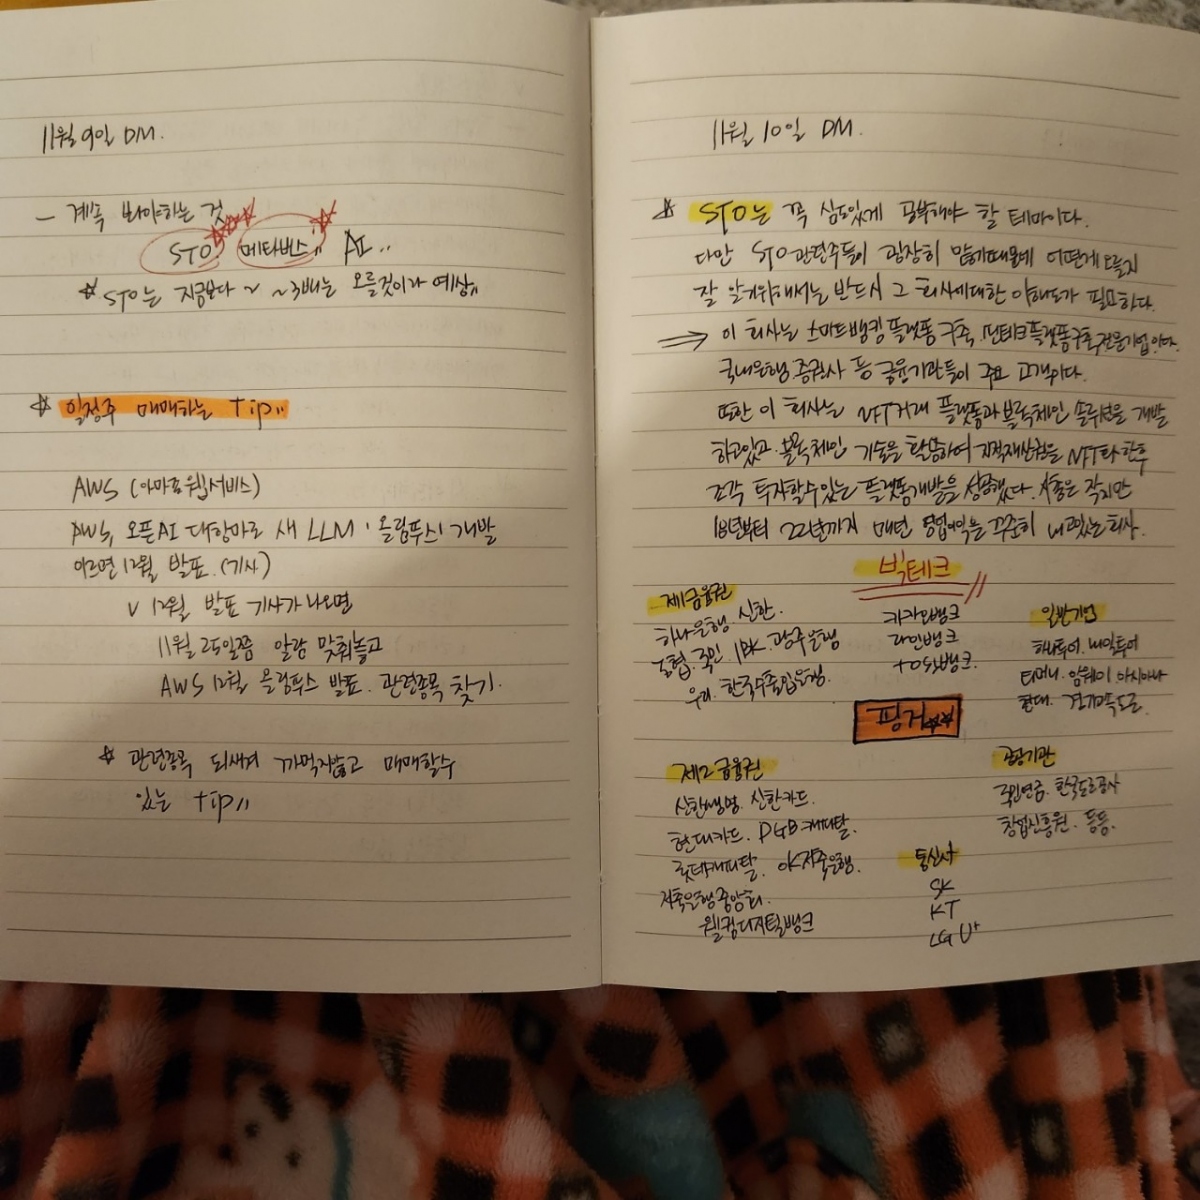 11월 9일 DM.
- 계속 봐야하는 것
STO. 메타버스,, AI..
☆ STO는 지금보다 ~ ~3배는 오를것이라 예상,,
☆ 일정주 매매하는 tip,,
AWS (아마존웹서비스)
AWS, 오픈AI 대항마로 새 LLM '올림푸스' 개발
이르면 12월 발표. (기사)
v 12월 발표 기사가 나오면
11월 25일쯤 알람 맞춰놓고
AWS 12월 올림푸스 발표. 관련종목 찾기.
☆ 관련종목 되새겨 까먹지않고 매매할수
있는 tip,,
11월 10일 DM.
☆ STO는 꼭 심도있게 공부해야 할 테마이다.
다만 STO관련주들이 굉장히 많기때문에 어떤게 오를지
잘 알기위해서는 반드시 그 회사에대한 이해도가 필요하다.
⇒ 이 회사는 스마트뱅킹 플랫폼 구축. 핀테크 플랫폼구축 전문기업이다.
국내은행, 증권사 등 금융기관들이 주요 고객이다.
또한 이 회사는 NFT거래 플랫폼과 블록체인 솔루션을 개발
하고있고. 블록체인 기술을 활용하여 지적재산권을 NFT화 한후
조각 투자할수있는 플랫폼개발을 성공했다. 시총은 작지만
18년부터 22년까지 매년 영업이익을 꾸준히 내고있는 회사.
빅테크
카카오뱅크
라인뱅크
토스뱅크.
제1금융권
하나은행. 신한.
농협. 국민. IBK. 광주은행
우리. 한국수출입은행.
일반기업
하나투어. 내일투어
티머니. 암웨이. 아시아나
현대. 경기고속도로
핑거☆☆
제2금융권
신한생명. 신한카드.
현대카드. DGB캐피탈.
롯데캐피탈. OK저축은행.
저축은행중앙회.
웰컴디지털뱅크
공공기관
국민연금. 한국도로공사
창업진흥원. 등등.
통신사
SK
KT
LG U+